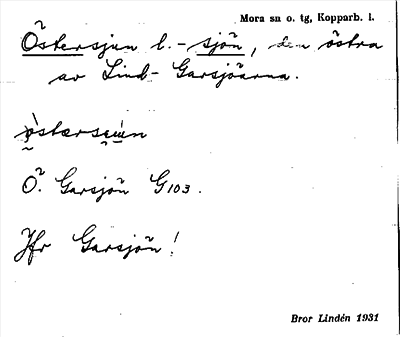 Mora sn o. tg, Kopparb. l.
Östersjun l. - sjön, den östra
av Lind- Garsjöarna.
Ö. Garsjön G103.
Jfr Garsjön!
Bror Lindén 1931